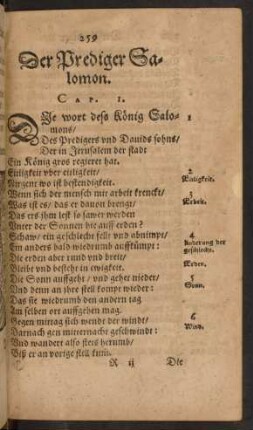 259
Der Prediger Sa-
lomon.
CAP. I.
DIe wort desz König Salo- 1
mons/
Des Predigers vnd Dauids sohns/
Der in Jerusalem der stadt
Ein König gros regieret hat.
Eitligkeit vber eitligkeit/ 2
Nirgent wo ist bestendigkeit. Eitligkeit.
Wenn sich der mensch mir arbeit krenckt/ 3
Was ist es/ das er dauon brengt/ Arbeit.
Das ers ihm lest so sawer werden
Vnter der Sonnen hie auff erden?
Schaw/ ein geschlecht felt vnd abnimpt/ 4
Ein anders bald wiedrumb auffkümpt: Enderung der
geschlecht.
Die erden aber rund vnd breit/
Bleibt vnd besteht in ewigkeit. Erden.
Die Sonn auffgeht/ vnd gehet nieder/ 5
Vnd denn an ihre stell kompt wieder: Sonn.
Das sie wiedrumb den andern tag
Am selben ort auffgehen mag.
Gegen mittag sich wende der windt/ 6
Darnach gen mitternacht geschwindt: Wind.
Vnd wandert also stets herumb/
Bisz er an vorige stell kum.
R ij Die